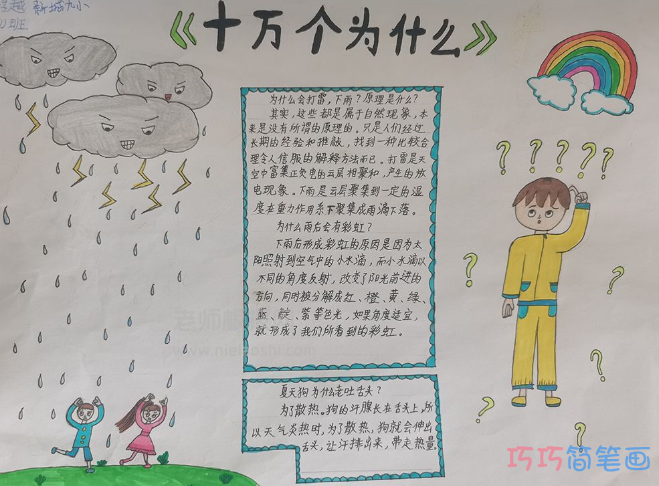 新城九小
班
《十万个为什么》
为什么会打雷,下雨?原理是什么?
其实,这些都是属于自然现象,本
来是没有所谓的原理的。只是人们经过
长期的经验和推敲,找到一种比较合
理令人信服的解释方法而已。打雷是天
空中富集正负电的云层相聚和,产生的放
电现象。下雨是云层聚集到一定的温
度在重力作用系下聚集成雨滴下落。
为什么雨后会有彩虹?
下雨后形成彩虹的原因是因为太
阳照射到空气中的小水滴,而小水滴以
不同的角度反射,改变了阳光前进的
方向,同时被分解成红、橙、黄、绿、
蓝、靛、紫等色光,如果角度适宜,
就形成了我们所看到的彩虹。
夏天狗为什么老吐舌头?
为了散热。狗的汗腺长在舌头上,所
以天气炎热时,为了散热,狗就会伸出
舌头,让汗排出来,带走热量
巧巧简笔画